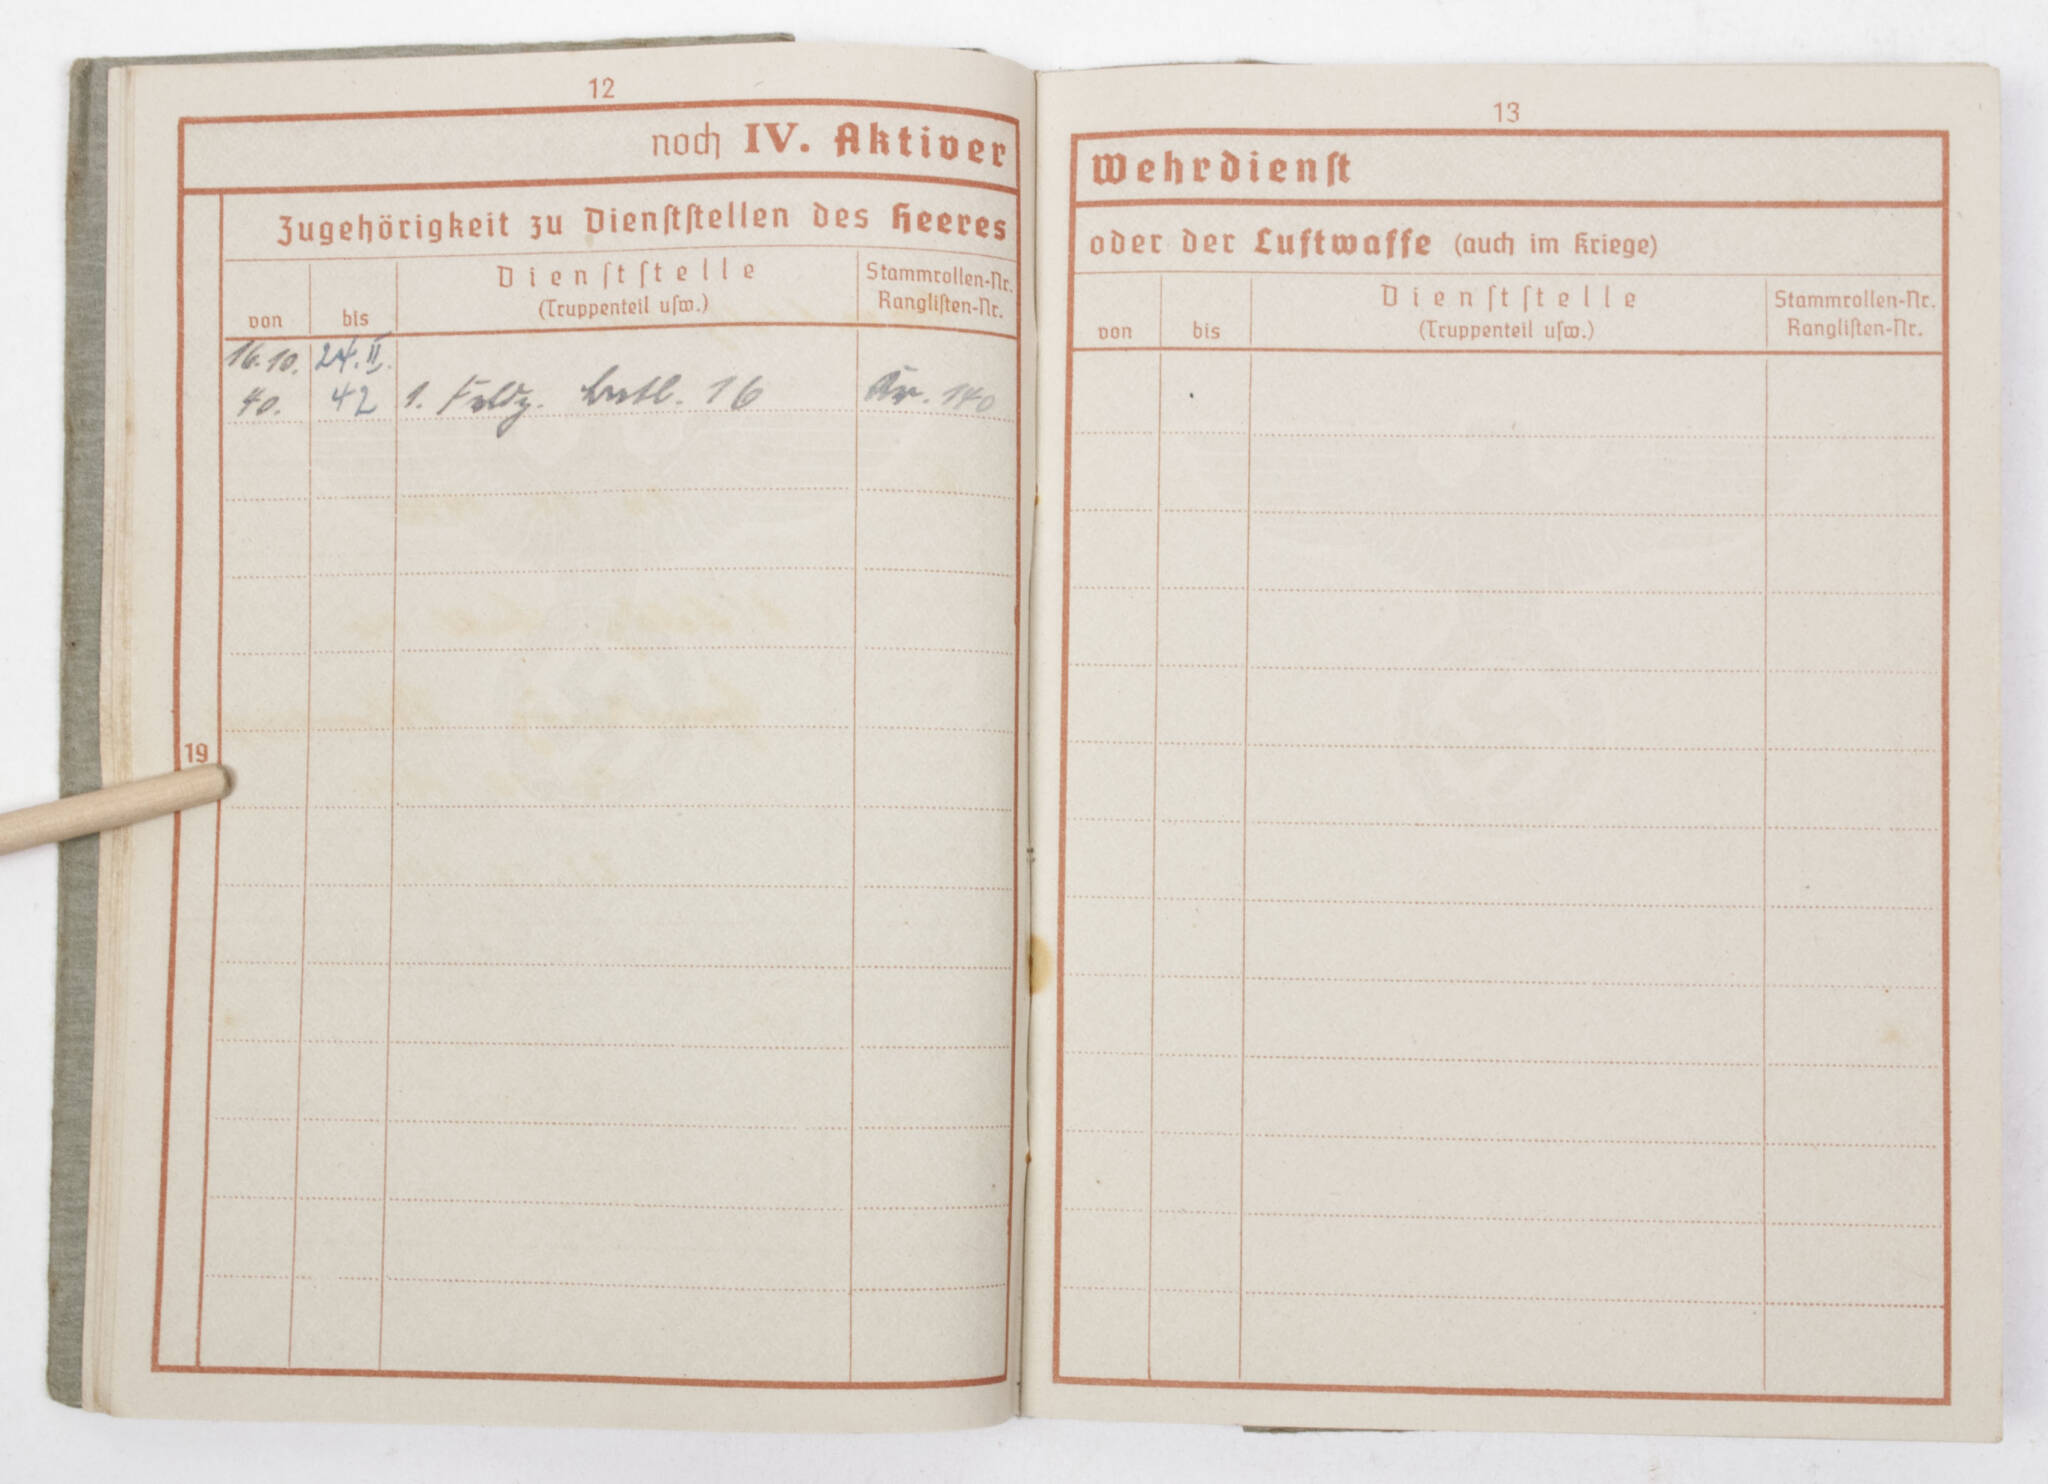 12
noch IV. Aktiver
Zugehörigkeit zu Dienststellen des Heeres
von
bis
Dienststelle
(Truppenteil usw.)
Stammrollen-Nr.
Ranglisten-Nr.
16.10.
40.
24.II.
42
1. Feldz. 16
140
19
13
Wehrdienst
oder der Luftwaffe (auch im Kriege)
von
bis
Dienststelle
(Truppenteil usw.)
Stammrollen-Nr.
Ranglisten-Nr.